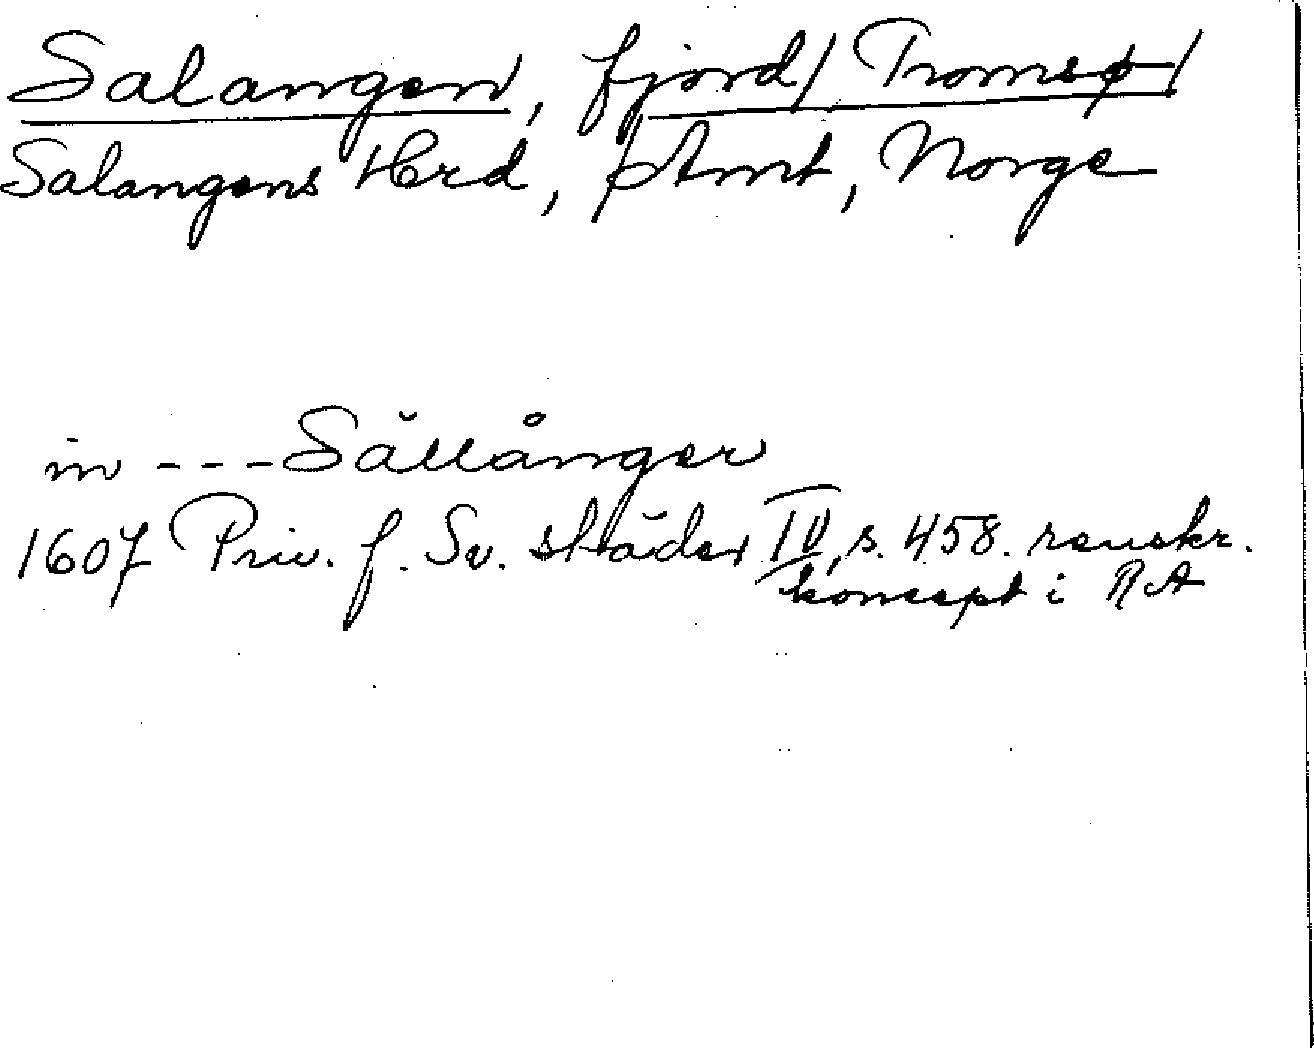 Salangen, fjord / Tromsø /
Salangens Hrd, Amt, Norge
in --- Sällånger
1607 Priv. f. Sv. städer IV, s. 458. renskr.
koncept i RA